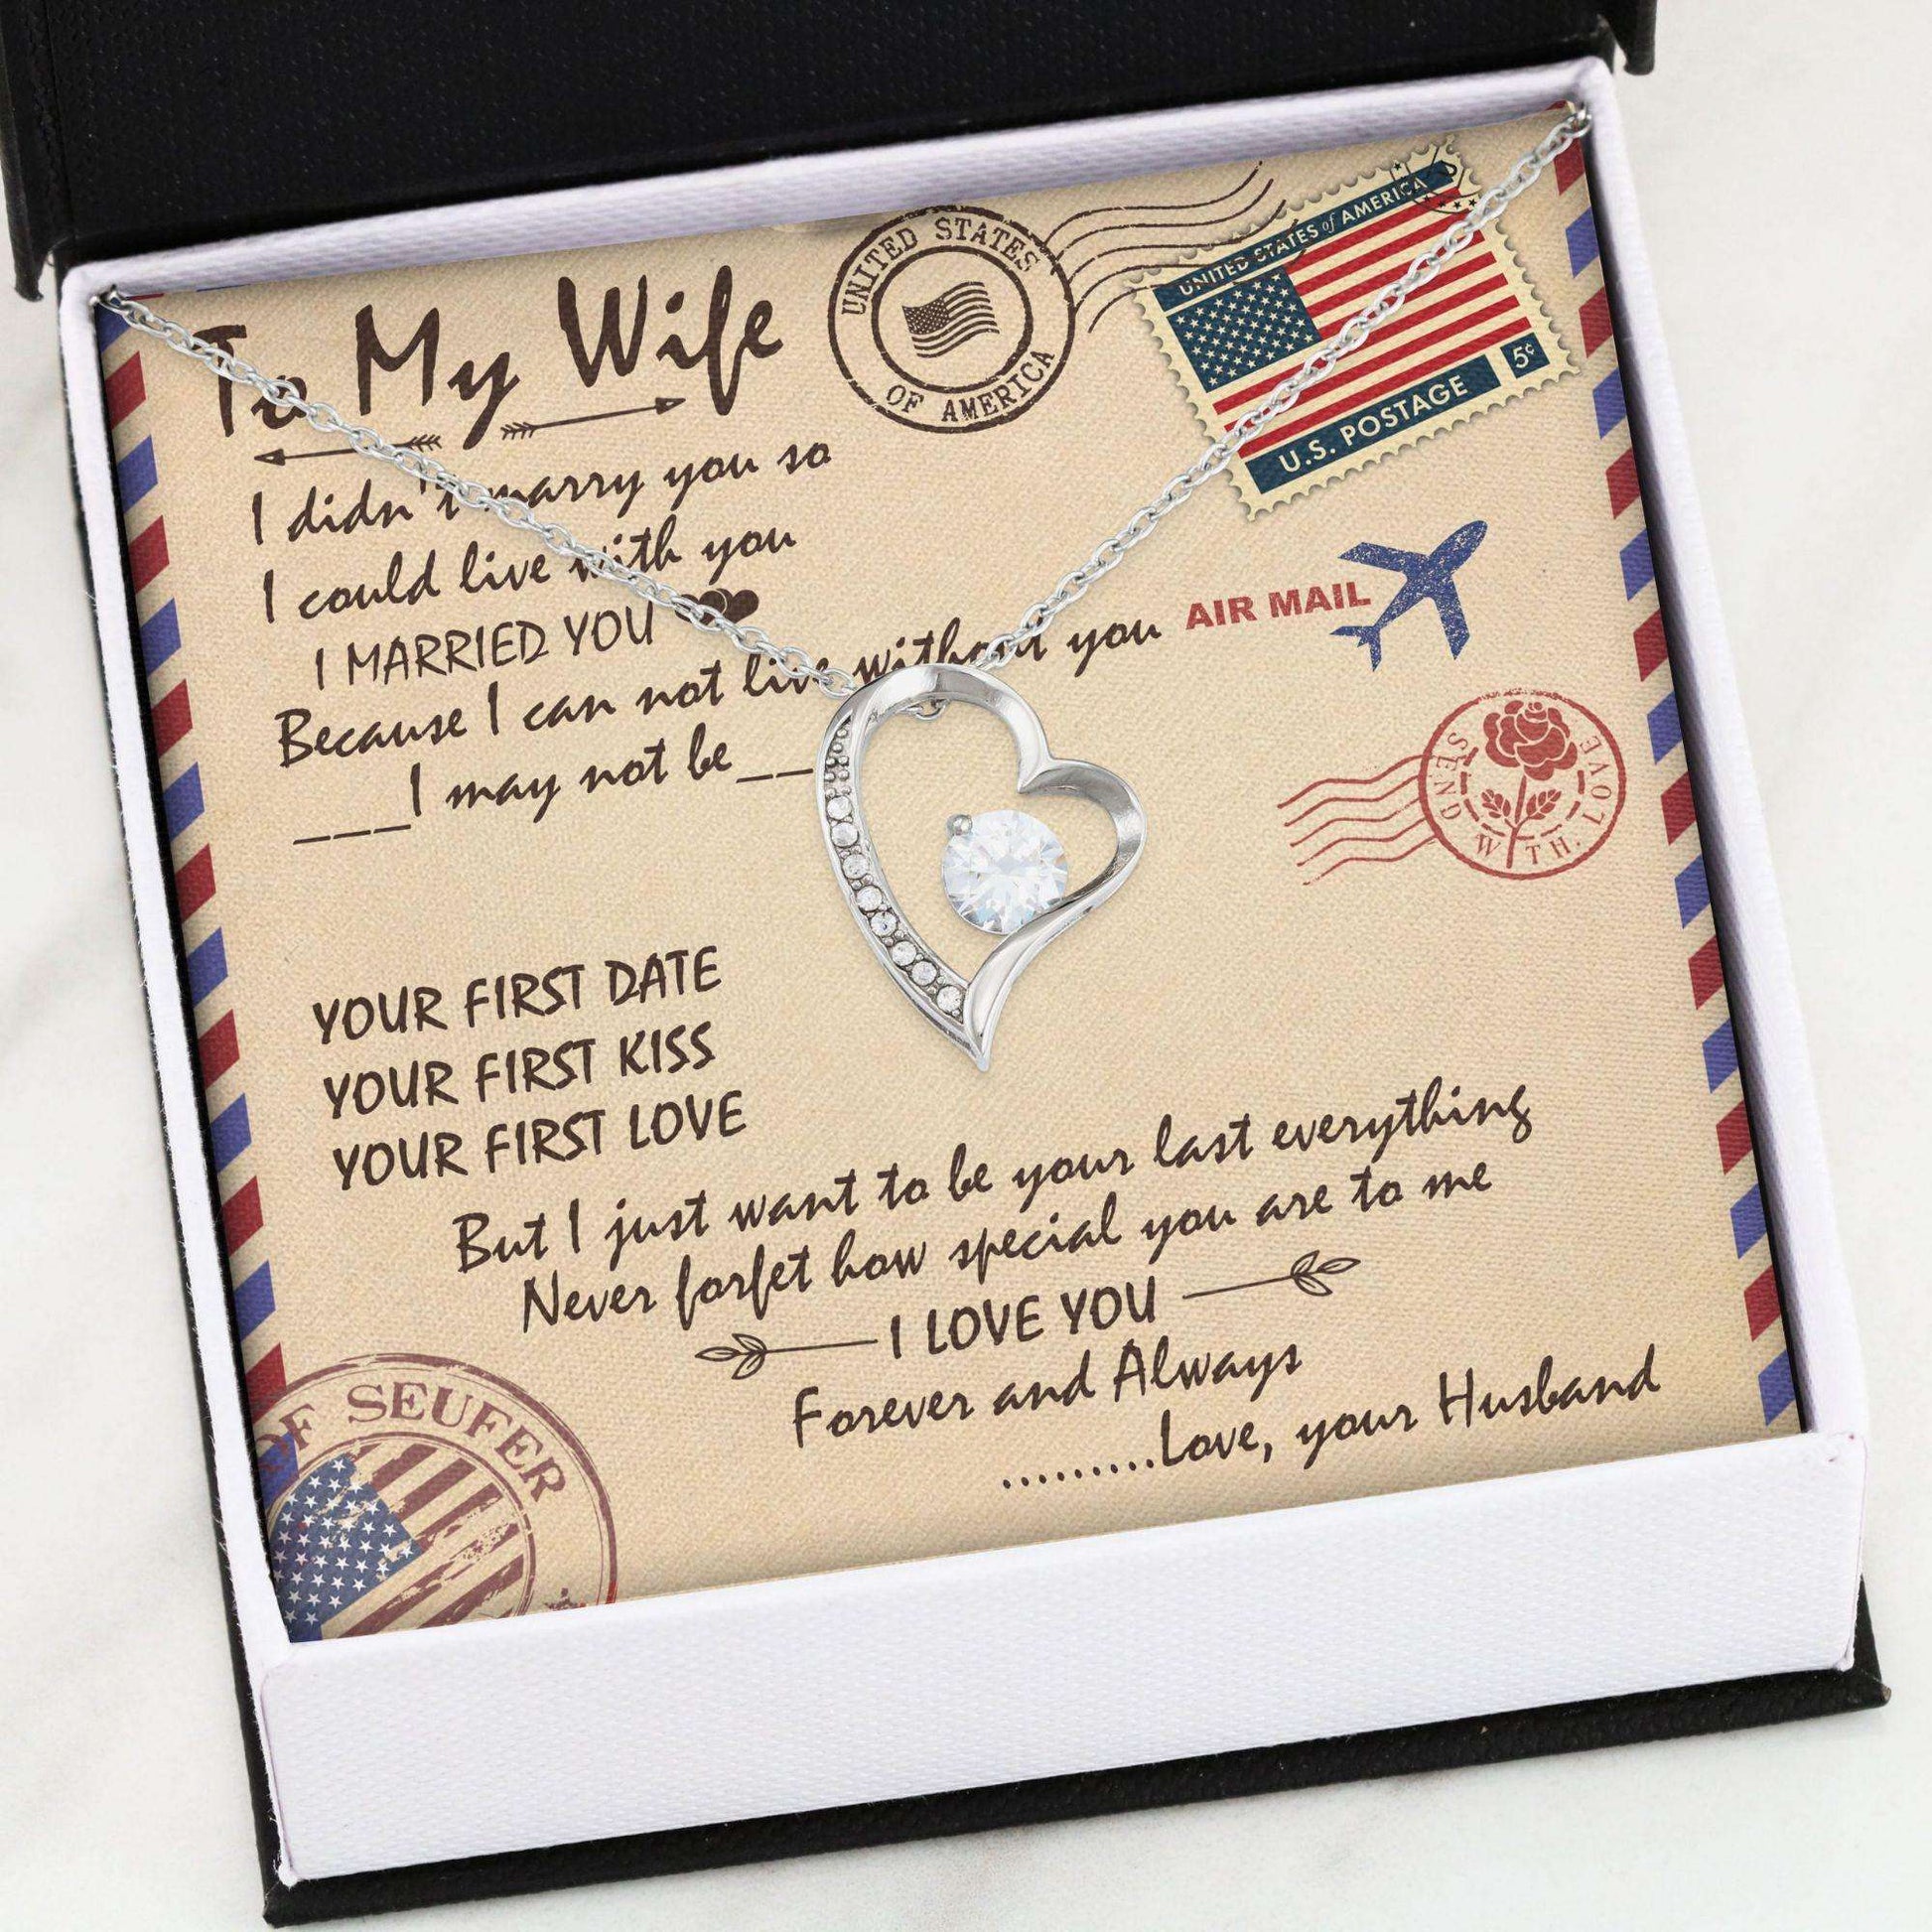 To My Wife
UNITED STATES
OF AMERICA
UNITED STATES of AMERICA
U.S. POSTAGE
5¢
I didn't marry you so
I could live with you
I MARRIED YOU
Because I can not live without you
___I may not be__
AIR MAIL
SEND WITH. LOVE
YOUR FIRST DATE
YOUR FIRST KISS
YOUR FIRST LOVE
But I just want to be your last everything
Never forfet how special you are to me
I LOVE YOU
Forever and Always
.........Love, your Husband
OF SEUFER